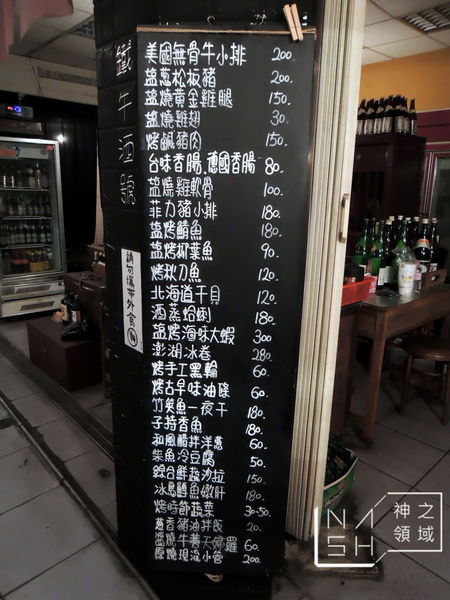 鐵牛酒號
美國無骨牛小排 200.
盐蔥松板豬 200.
盐燒黃金雞腿 150.
盐燒雞翅 30.
烤鹹豬肉 150.
台味香腸、德國香腸 80.
盐燒雞軟骨 100.
菲力豬小排 180.
盐烤鯖魚 180.
盐烤柳葉魚 90.
烤秋刀魚 120.
北海道干貝 120.
酒蒸蛤蜊 180.
盐烤海味大蝦 300
澎湖冰卷 280.
烤手工黑輪 60.
烤古早味油條 60.
竹筴魚一夜干 180.
子持香魚 180.
和風醋拌洋蔥 60.
柴魚冷豆腐 50.
綜合鮮蔬沙拉 150.
冰島鱈魚 180.
烤時節蔬菜 30-50.
蔥香豬油拌飯 20.
醬燒牛蒡天婦羅 60.
原燒現流小管 200.
請勿攜帶外食
NISH
神之領域